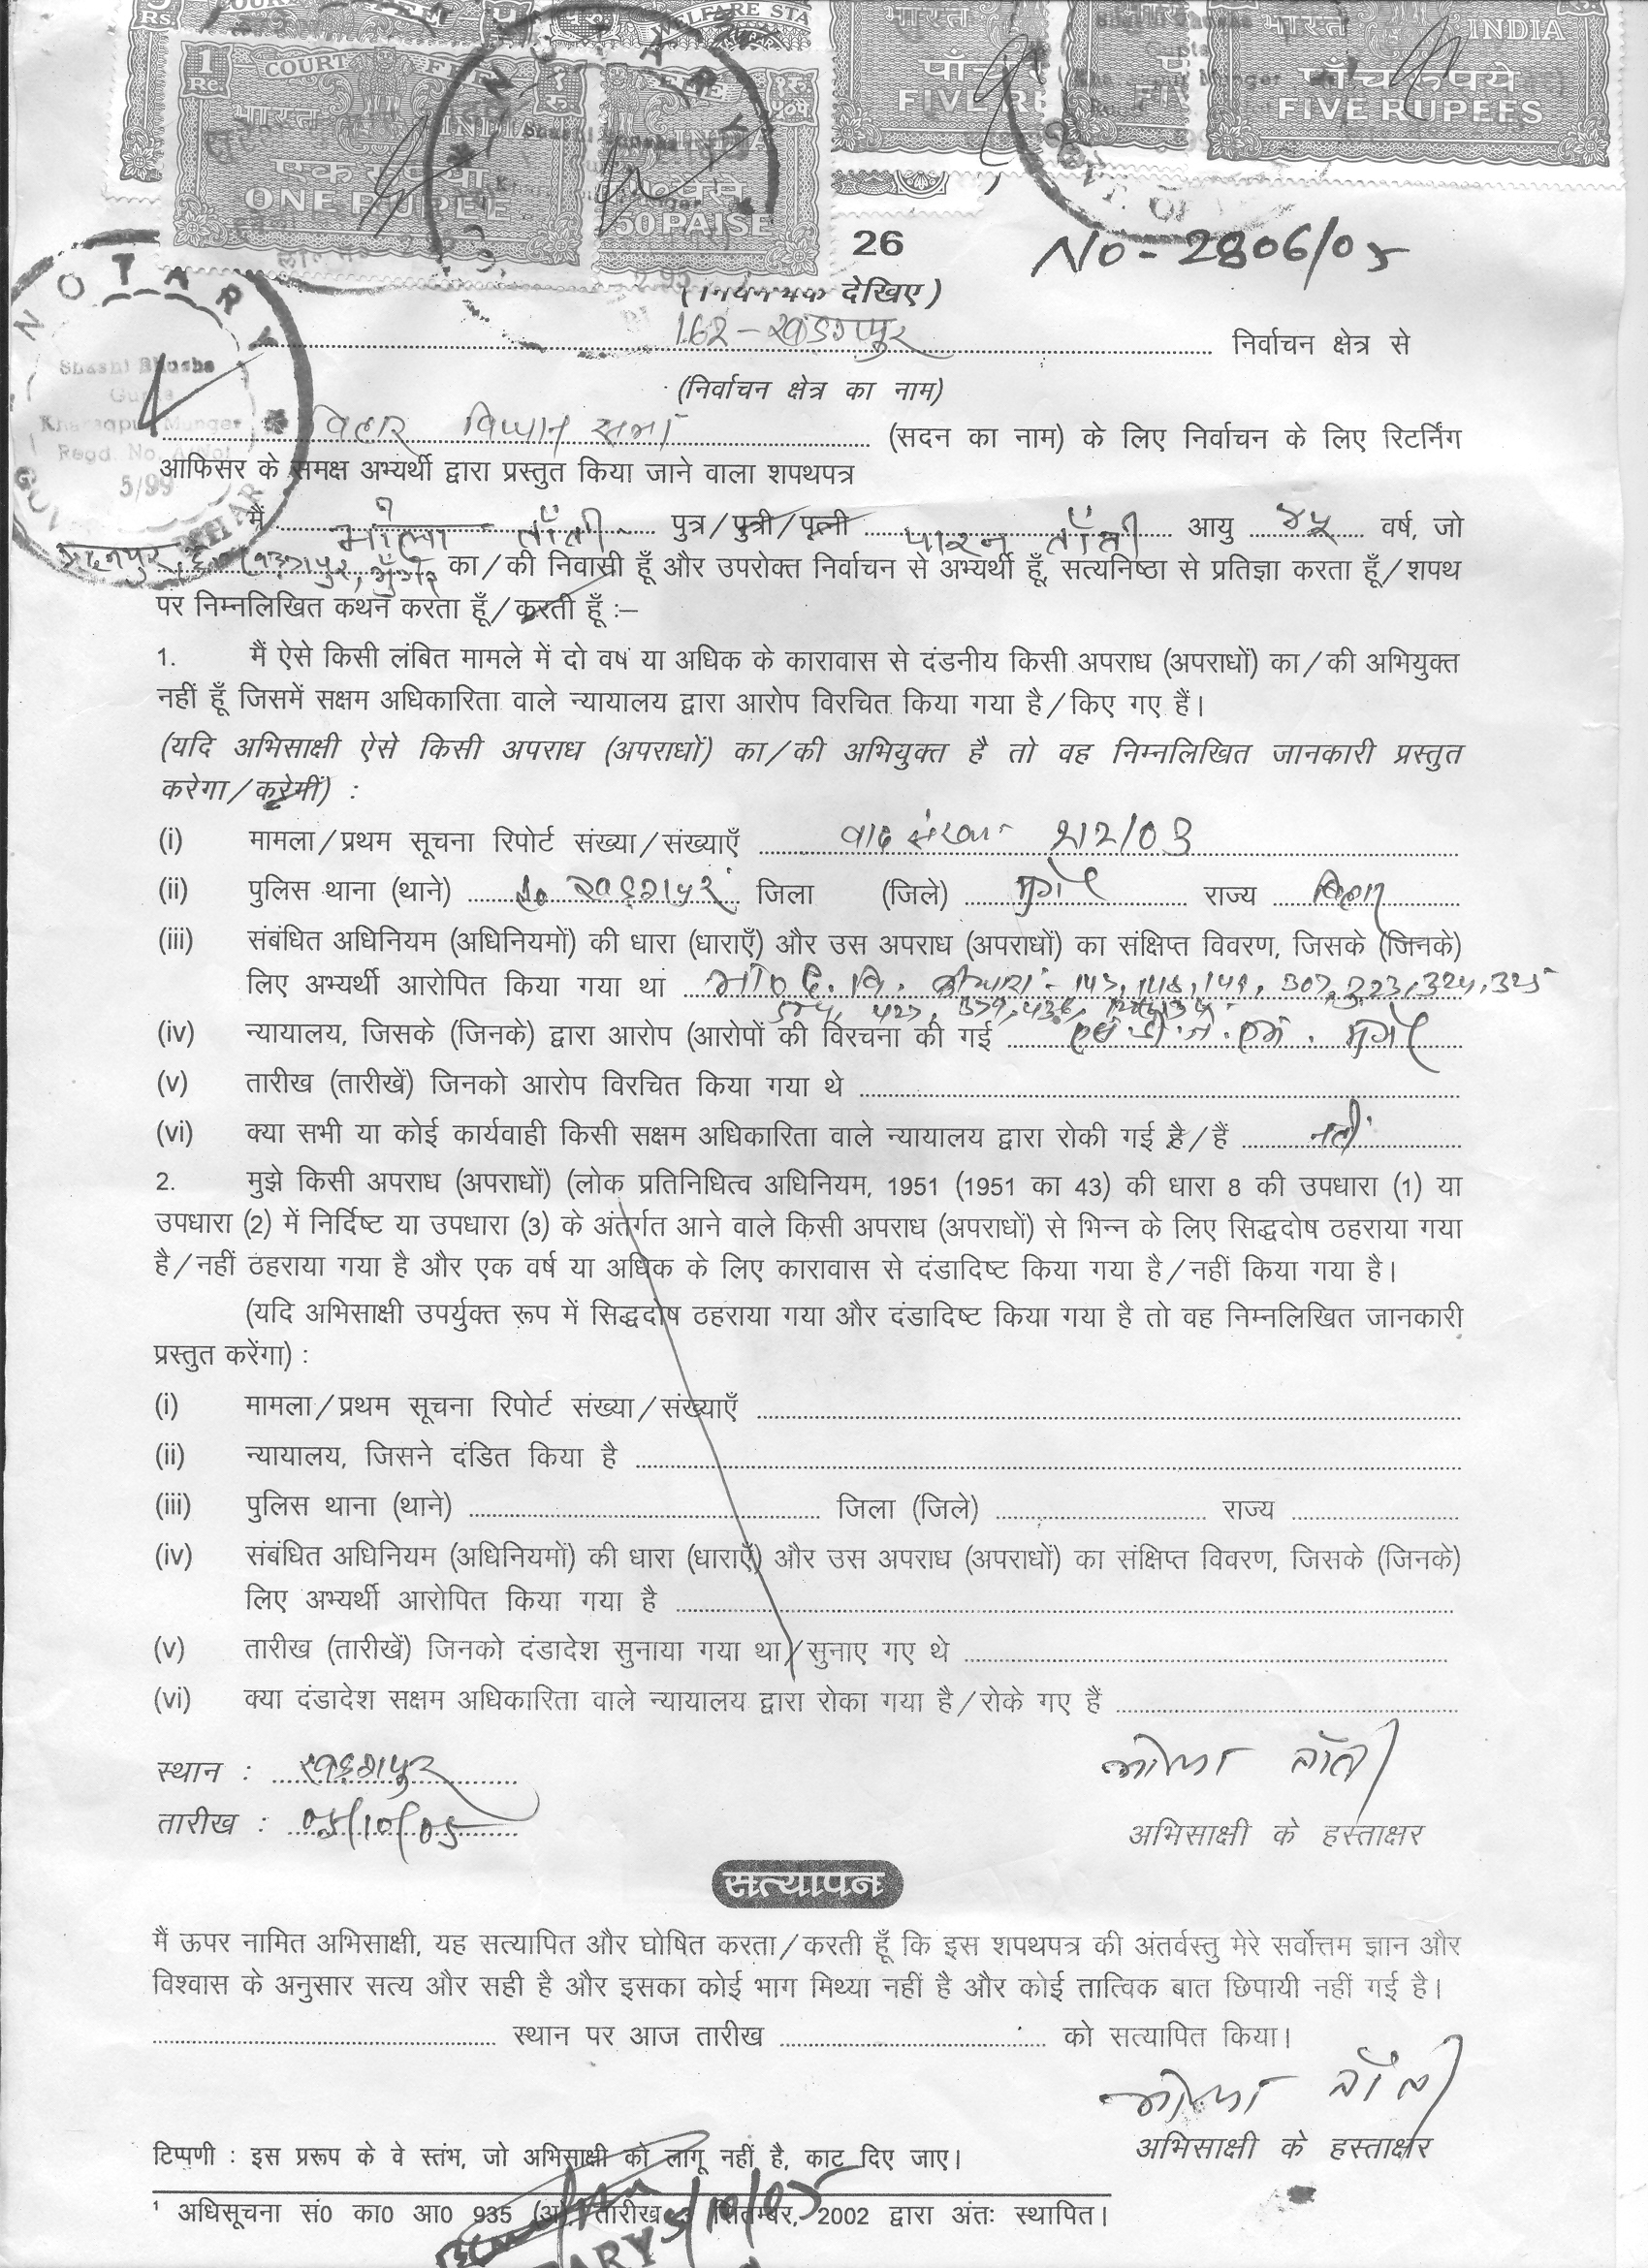 COURT FEE
WELFARE STA
1 Rs. COURT FEE
भारत INDIA
एक रुपया
ONE RUPEE
FEE
INDIA
50 PAISE
भारत
पाँच
FIVE
भारत INDIA
पाँच रुपये
FIVE RUPEES
NOTARY
26
No - 2806/05
देखिए)
162 - खड़गपुर निर्वाचन क्षेत्र से
(निर्वाचन क्षेत्र का नाम)
NOTARY
Shashi Bhusha
Gupta
Kharagpur Munger
Regd. No.
5/99
बिहार विधान सभा (सदन का नाम) के लिए निर्वाचन के लिए रिटर्निंग
आफिसर के समक्ष अभ्यर्थी द्वारा प्रस्तुत किया जाने वाला शपथपत्र
मैं भोला ताँती पुत्र/पुत्री/पत्नी ताँती आयु ४५ वर्ष, जो
खड़गपुर, मुँगेर का/की निवासी हूँ और उपरोक्त निर्वाचन से अभ्यर्थी हूँ, सत्यनिष्ठा से प्रतिज्ञा करता हूँ/शपथ
पर निम्नलिखित कथन करता हूँ/करती हूँ :–
1. मैं ऐसे किसी लंबित मामले में दो वर्ष या अधिक के कारावास से दंडनीय किसी अपराध (अपराधों) का/की अभियुक्त
नहीं हूँ जिसमें सक्षम अधिकारिता वाले न्यायालय द्वारा आरोप विरचित किया गया है/किए गए हैं।
(यदि अभिसाक्षी ऐसे किसी अपराध (अपराधों) का/की अभियुक्त है तो वह निम्नलिखित जानकारी प्रस्तुत
करेगा/करेगीं) :
(i) मामला/प्रथम सूचना रिपोर्ट संख्या/संख्याएँ वाद संख्या- 212/03
(ii) पुलिस थाना (थाने) ह० खड़गपुर जिला (जिले) मुंगेर राज्य बिहार
(iii) संबंधित अधिनियम (अधिनियमों) की धारा (धाराएँ) और उस अपराध (अपराधों) का संक्षिप्त विवरण, जिसके (जिनके)
लिए अभ्यर्थी आरोपित किया गया था भा० द. वि. की धारा :- 147, 148, 149, 307, 323, 324, 325
427, 379, 436,
(iv) न्यायालय, जिसके (जिनके) द्वारा आरोप (आरोपों की विरचना की गई एस. डी. जे. एम. मुंगेर
(v) तारीख (तारीखें) जिनको आरोप विरचित किया गया थे
(vi) क्या सभी या कोई कार्यवाही किसी सक्षम अधिकारिता वाले न्यायालय द्वारा रोकी गई है/हैं नहीं
2. मुझे किसी अपराध (अपराधों) (लोक प्रतिनिधित्व अधिनियम, 1951 (1951 का 43) की धारा 8 की उपधारा (1) या
उपधारा (2) में निर्दिष्ट या उपधारा (3) के अंतर्गत आने वाले किसी अपराध (अपराधों) से भिन्न के लिए सिद्धदोष ठहराया गया
है/नहीं ठहराया गया है और एक वर्ष या अधिक के लिए कारावास से दंडादिष्ट किया गया है/नहीं किया गया है।
(यदि अभिसाक्षी उपर्युक्त रूप में सिद्धदोष ठहराया गया और दंडादिष्ट किया गया है तो वह निम्नलिखित जानकारी
प्रस्तुत करेंगा) :
(i) मामला/प्रथम सूचना रिपोर्ट संख्या/संख्याएँ
(ii) न्यायालय, जिसने दंडित किया है
(iii) पुलिस थाना (थाने) जिला (जिले) राज्य
(iv) संबंधित अधिनियम (अधिनियमों) की धारा (धाराएँ) और उस अपराध (अपराधों) का संक्षिप्त विवरण, जिसके (जिनके)
लिए अभ्यर्थी आरोपित किया गया है
(v) तारीख (तारीखें) जिनको दंडादेश सुनाया गया था/सुनाए गए थे
(vi) क्या दंडादेश सक्षम अधिकारिता वाले न्यायालय द्वारा रोका गया है/रोके गए हैं
स्थान : खड़गपुर भोला ताँती
तारीख : 05/10/05 अभिसाक्षी के हस्ताक्षर
सत्यापन
मैं ऊपर नामित अभिसाक्षी, यह सत्यापित और घोषित करता/करती हूँ कि इस शपथपत्र की अंतर्वस्तु मेरे सर्वोत्तम ज्ञान और
विश्वास के अनुसार सत्य और सही है और इसका कोई भाग मिथ्या नहीं है और कोई तात्विक बात छिपायी नहीं गई है।
स्थान पर आज तारीख को सत्यापित किया।
भोला ताँती
अभिसाक्षी के हस्ताक्षर
टिप्पणी : इस प्ररूप के वे स्तंभ, जो अभिसाक्षी को लागू नहीं है, काट दिए जाए।
5/10/05
1 अधिसूचना सं0 का0 आ0 935 (अ), तारीख 3 सितम्बर, 2002 द्वारा अंतः स्थापित।